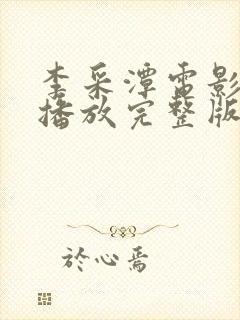 李采潭电影
播放完整版
於心焉